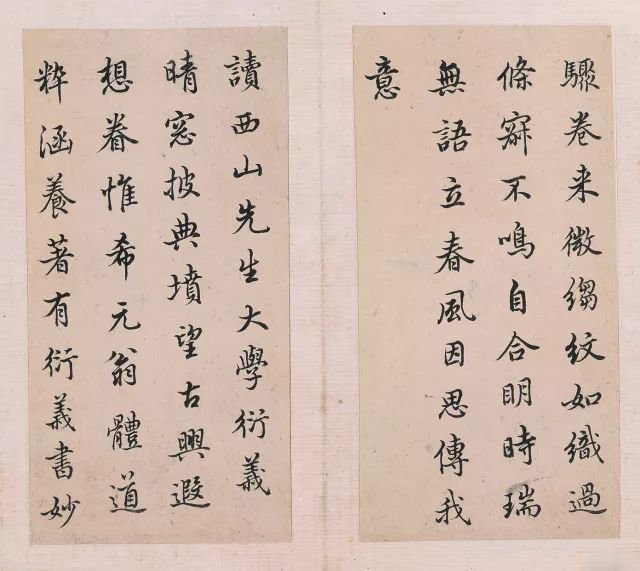 驟卷来微縐紋如織過
條寂不鳴自合明時瑞
無語立春風因思傳我
意
讀西山先生大學衍義
晴窓披典墳望古興遐
想眷惟希元翁體道
粹涵養著有衍義書妙